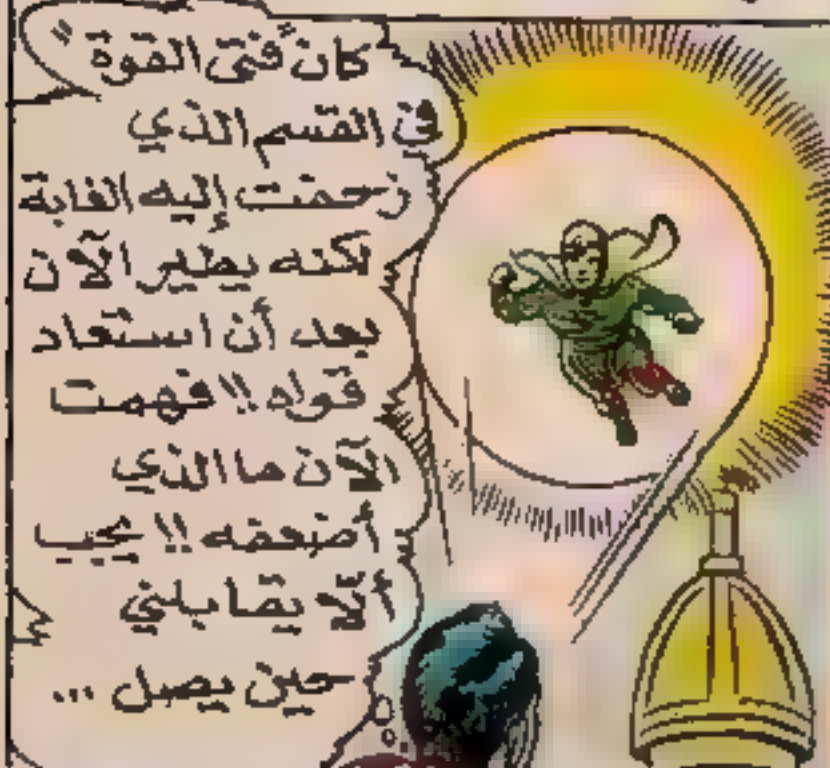 كان "فتى القوة"
في القسم الذي
زحفت إليه الغابة
لكنه يطير الآن
بعد أن استعاد
قواه !! فهمت
الآن ما الذي
أضعفه !! يجب
ألّا يقابلني
حين يصل ...